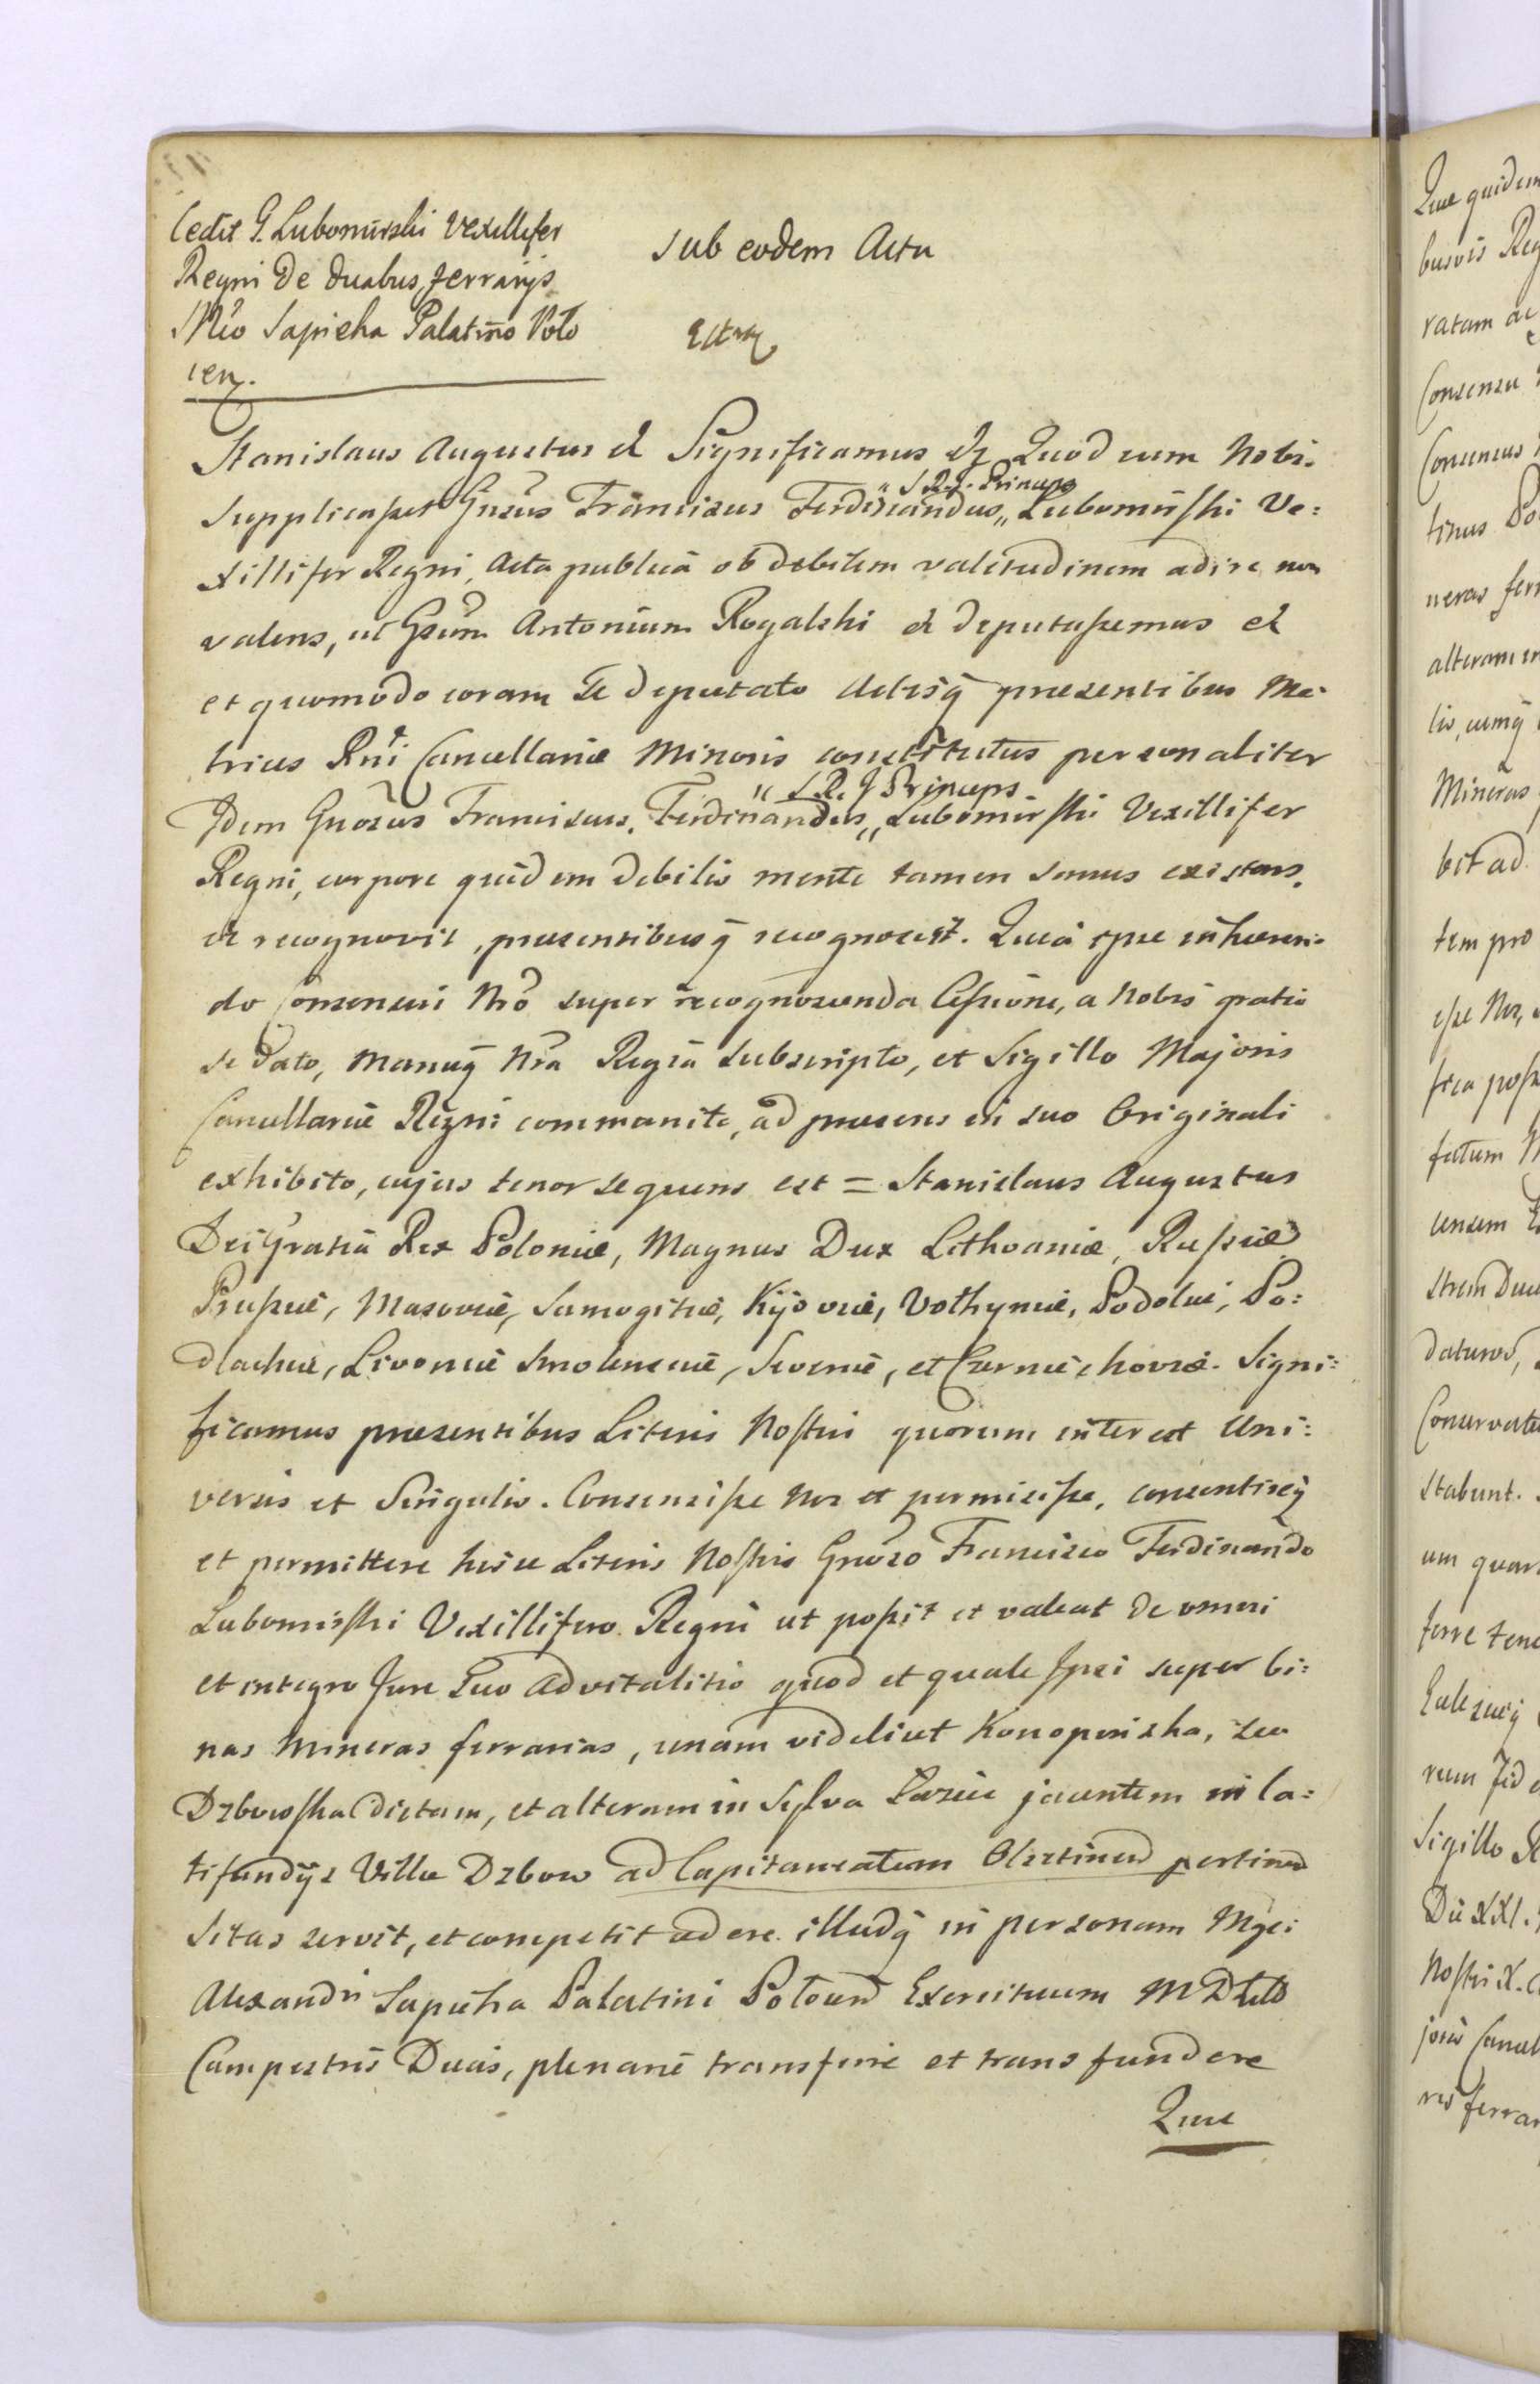 Cedit G. Lubomirski Vexillifer
Regni de duabus ferrarijs
Mco Sapieha Palatino Polo
cen.
Sub eodem Actu
Stanislaus Augustus et Significamus etz Quod cum Nobis
supplicasset Gnsus Franciscus Ferdinandus „ S. R. J. Princeps „ Lubomirski Ve:
xillifer Regni, Acta publica ob debilem valetudinem adire non
valens, ut Gsum Antonium Rogalski et deputassemus et
et quomodo coram Se deputato Actisq̃ præsentibus Me-
trices Rni Cancellariæ Minoris constitutus personaliter
Idem Gnosus Franciscus Ferdinandus „ S. R. J. Princeps „ Lubomirski Vexillifer
Regni, corpore quidem debilis mente tamen sanus existens,
et recognovit, præsentibusq̃ recognoscit. Quia ipse inhæren-
do Consensui Nro super recognoscenda Cessione, a Nobis gratio
se dato, Manuq̃ Nra Regia subscripto, et Sigillo Majoris
Cancellariæ Regni communito, ad præsens in suo Originali
exhibito, cujus tenor sequens est = Stanislaus Augustus
Dei Gratia Rex Poloniæ, Magnus Dux Lithvaniæ, Russiæ
Prussiæ, Masoviæ, Samogitiæ, Kijoviæ, Volhyniæ, Podoliæ, Po:
dlachiæ, Livoniæ Smolensciæ, Severiæ, et Czerniechoviæ. Signi:
ficamus præsentibus Literis Nostris quorum interest Uni:
versis et Singulis. Consensisse Nos et permisisse, consentireq̃
et permittere hisce Literis Nostris Gnoso Francisco Ferdinando
Lubomirski Vexillifero Regni ut possit et valeat de omni
et integro Jure Suo advitalitio quod et quale Ipsi super bi:
nas Mineras ferrarias, unam videlicet Konopiriska, seu
Dzbowska dictam, et alteram in Sylva Laziec jacentem in la:
tifundijs Villæ Dzbow ad Capitaneatum Olsztinen pertinen
Sitas servit, et competit ad ere. illudq̃ in personam Mgci
Alexandri Sapieha Palatini Polocen Exercituum M D Litt
Campestris Ducis, plenarie transferre et transfundere
Quæ
Quæ quidem
busvis Reg
ratam ac
Consensu
Consensus
tinus Po
neras fer
alteram in
lis, cumq̃
Mineras
bit ad
tem pro
esse Nos,
fica poss
fatum
censem
strem Duc
daturos,
Conservatu
stabunt.
um quar
ferre tene
rum fid
Sigillo R
Die XXI.
Nostri X.
joris Cancel
res ferrar